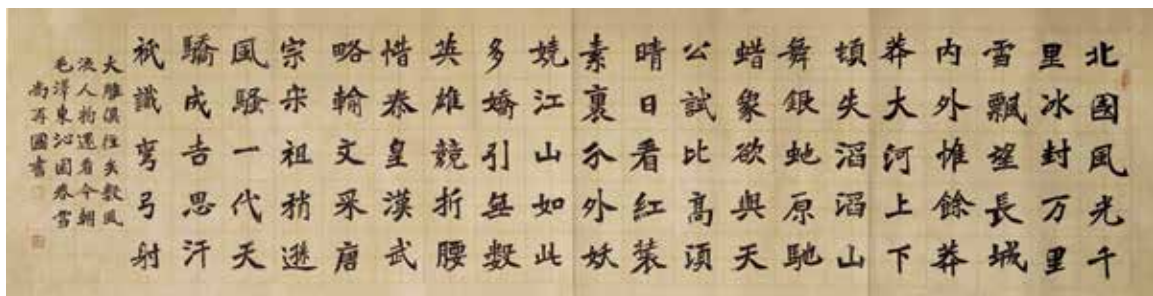 北國風光千
里冰封万里
雪飄望長城
内外惟餘莽
莽大河上下
頓失滔滔山
舞銀虵原馳
蜡象欲與天
公試比高須
晴日看紅装
素裹分外妖
嬈江山如此
多嬌引無數
英雄競折腰
惜秦皇漢武
略輸文采唐
宗宋祖稍遜
風騷一代天
驕成吉思汗
祗識彎弓射
大雕俱往矣數風
流人物還看今朝
毛澤東沁園春雪
尚再國書